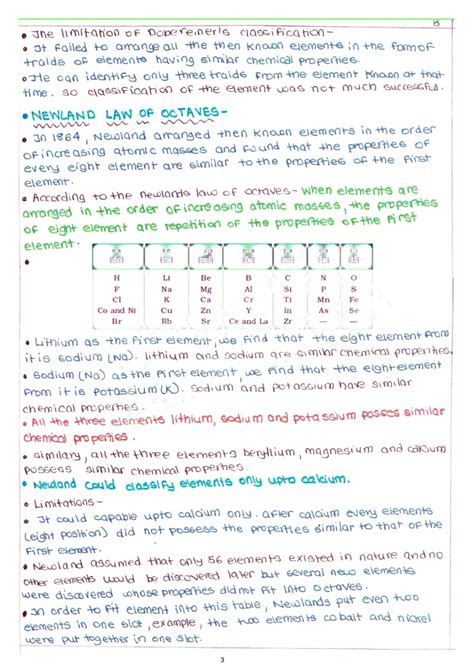 8
• The limitation of Dobereiner's classification-
• It failed to arrange all the then known elements in the form of
traids of elements having similar chemical properties.
• He can identify only three traids from the element known at that
time. so classification of the element was not much successful.
• NEWLAND LAW OF OCTAVES-
• In 1864, Newland arranged then known elements in the order
of increasing atomic masses and found that the properties of
every eight element are similar to the properties of the first
element.
• According to the newlands law of octaves- when elements are
arranged in the order of increasing atomic masses, the properties
of eight element are repetition of the properties of the first
element.
H Li Be B C N O
F Na Mg Al Si P S
Cl K Ca Cr Ti Mn Fe
Co and Ni Cu Zn Y In As Se
Br Rb Sr Ce and La Zr — —
• Lithium as the first element, we find that the eight element from
it is sodium (Na). lithium and sodium are similar chemical properties.
• Sodium (Na) as the first element, we find that the eight element
from it is potassium (K). sodium and potassium have similar
chemical properties.
• All the three elements lithium, sodium and potassium posses similar
chemical properties.
• similary, all the three elements beryllium, magnesium and calcium
possess similar chemical properties.
• Newland could classify elements only upto calcium.
• Limitations-
• It could capable upto calcium only. after calcium every elements
(eight position) did not possess the properties similar to that of the
first element.
• Newland assumed that only 56 elements existed in nature and no
other elements would be discovered later but several new elements
were discovered whose properties did not fit into octaves.
• In order to fit element into this table, Newlands put even two
elements in one slot, example, the two elements cobalt and nickel
were put together in one slot.
3